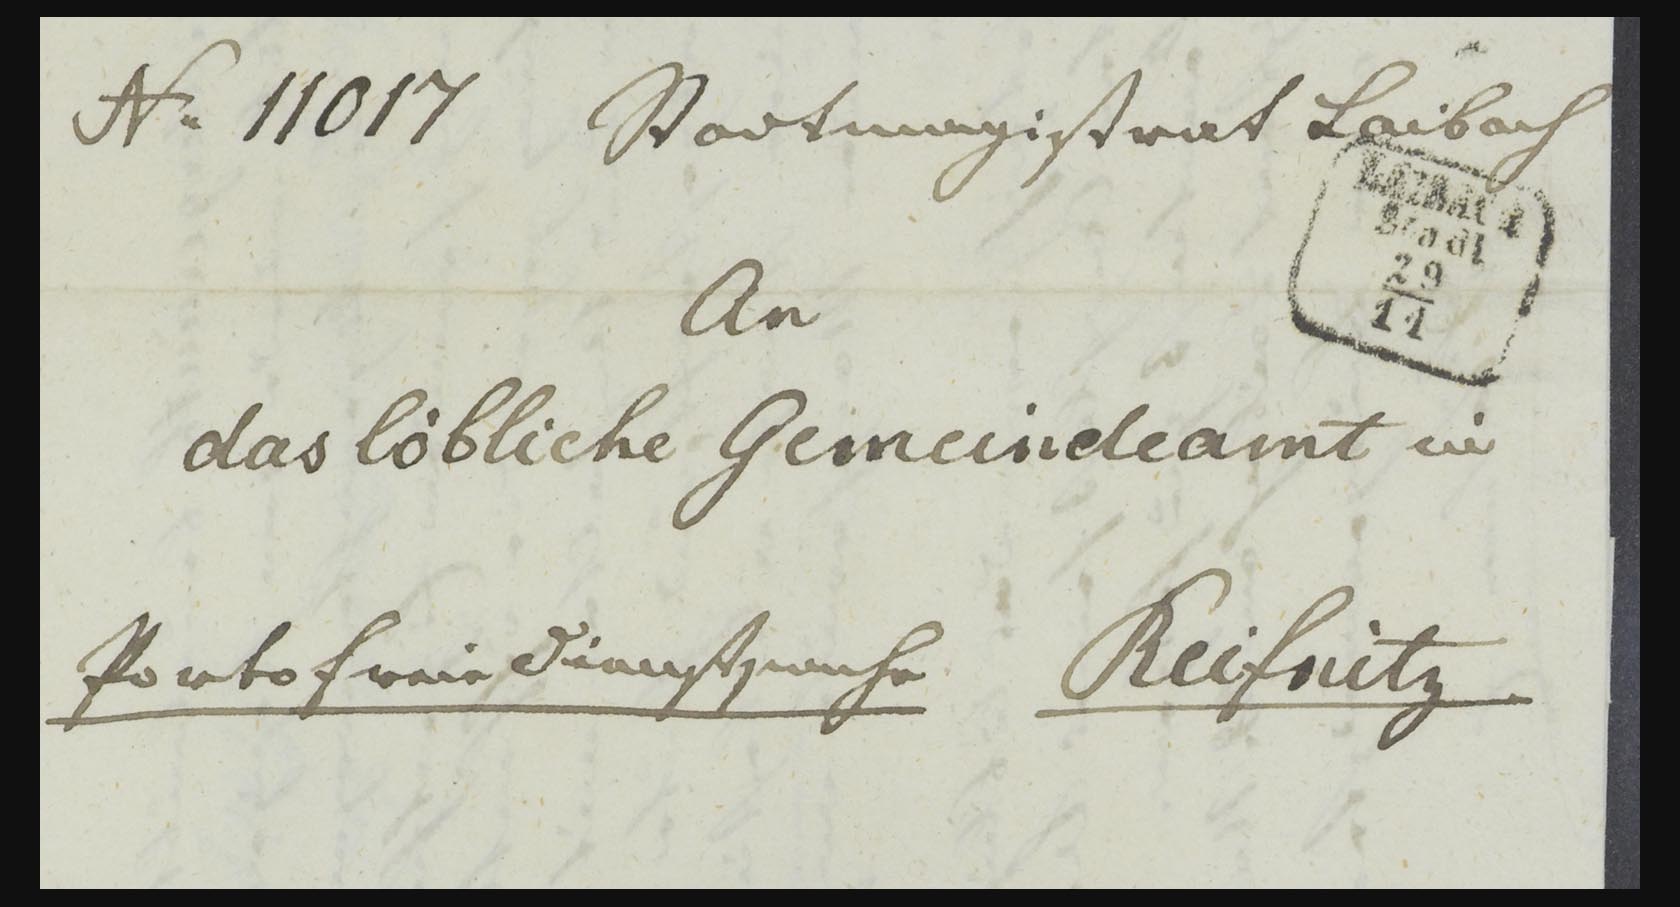 Nr. 11017 Stadtmagistrat Laibach
LAIBACH
Stadt
29
11
An
das löbliche Gemeindeamt in
Portofreie Dienstsache Reifnitz